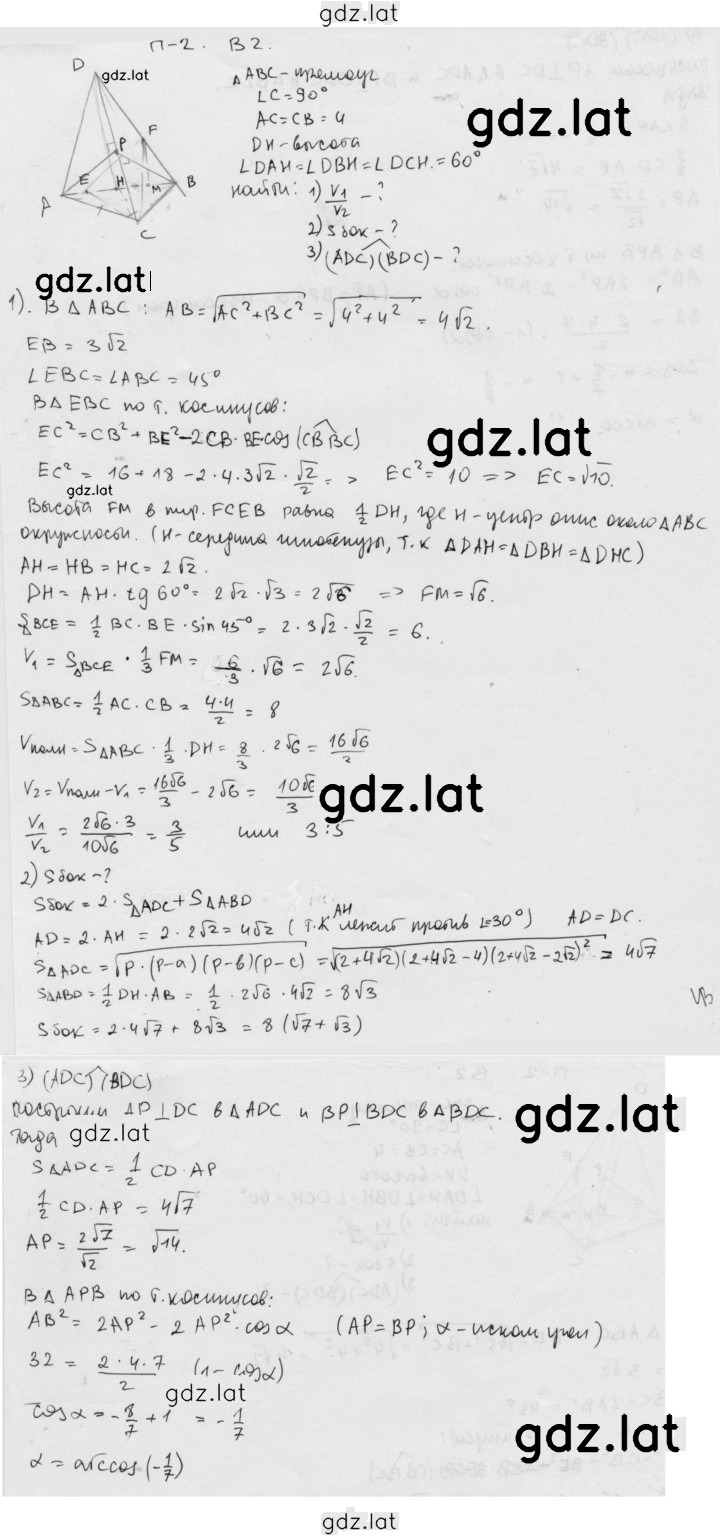 gdz.lat
П-2. В2.
D
gdz.lat
F
P
E
H
M
B
A
C
△ABC-прямоуг
∠C=90°
AC=CB=4
DH-высота
∠DAH=∠DBH=∠DCH.=60°
найти: 1) V₁/V₂ - ?
2) Sбок - ?
3) (ADC)^(BDC) - ?
gdz.lat
gdz.lat
1). В △ABC : AB=√(AC²+BC²)=√(4²+4²)=4√2.
EB = 3√2
∠EBC=∠ABC=45°
В△EBC по т. косинусов:
EC²=CB²+BE²-2CB·BE·cos(CB^BC)
EC² = 16+18-2·4·3√2·√2/2 => EC²=10 => EC=√10.
gdz.lat
gdz.lat
Высота FM в пир. FCEB равна 1/2 DH, где H-центр опис около△ABC
окружности. (H-середина гипотенузы, т.к △DAH=△DBH=△DHC)
AH=HB=HC=2√2.
DH=AH·tg60°=2√2·√3=2√6 => FM=√6.
SBCE=1/2 BC·BE·sin45°=2·3√2·√2/2=6.
V₁=S△BCE·1/3 FM=6/3·√6=2√6.
S△ABC=1/2 AC·CB=4·4/2=8
Vполн=S△ABC·1/3·DH=8/3·2√6=16√6/3
V₂=Vполн-V₁=16√6/3-2√6=10√6/3
gdz.lat
V₁/V₂=2√6·3/10√6=3/5 или 3:5
2) Sбок-?
Sбок=2·S△ADC+S△ABD
AD=2·AH=2·2√2=4√2 (т.к AH лежит против ∠=30°) AD=DC.
S△ADC=√(p·(p-a)(p-b)(p-c))=√((2+4√2)(2+4√2-4)(2+4√2-2√2)²)=4√7
S△ABD=1/2 DH·AB=1/2·2√6·4√2=8√3
Sбок=2·4√7+8√3=8(√7+√3)
3) (ADC)^(BDC)
построим AP⊥DC в△ADC и BP⊥BDC в△BDC.
Тогда
gdz.lat
gdz.lat
S△ADC=1/2 CD·AP
1/2 CD·AP=4√7
AP=2√7/√2=√14.
gdz.lat
В△APB по т.косинусов:
AB²=2AP²-2AP²·cosα (AP=BP; α-иском угол)
32=2·4·7/2 (1-cosα)
gdz.lat
cosα=-8/7+1=-1/7
gdz.lat
α=arccos(-1/7)
gdz.lat